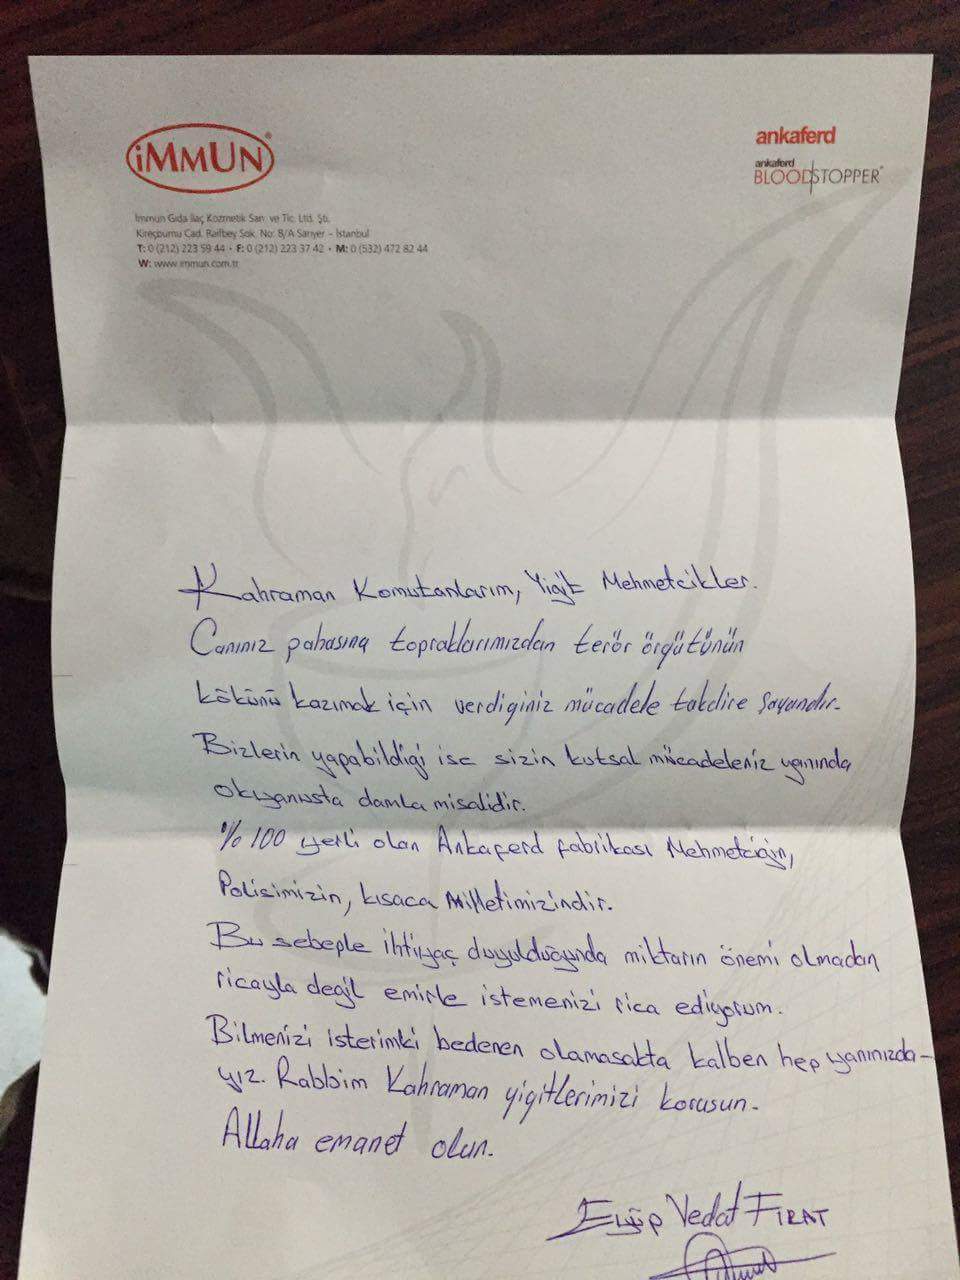 iMMUN
ankaferd
ankaferd
BLOODSTOPPER
İmmun Gıda İlaç Kozmetik San. ve Tic. Ltd. Şti.
Kireçburnu Cad. Raifbey Sok. No: 8/A Sarıyer – İstanbul
T: 0 (212) 223 59 44 • F: 0 (212) 223 37 42 • M: 0 (532) 472 82 44
W: www.immun.com.tr
Kahraman Komutanlarım, Yiğit Mehmetcikler.
Canınız pahasına topraklarımızdan terör örgütünün
kökünü kazımak için verdiginiz mücadele takdire şayandır.
Bizlerin yapabildiği ise sizin kutsal mücadeleniz yanında
okyanusta damla misalidir.
%100 yerli olan Ankaferd fabrikası Mehmetciğin,
Polisimizin, kısaca Milletimizindir.
Bu sebeple ihtiyaç duyulduğunda miktarın önemi olmadan
ricayla değil emirle istemenizi rica ediyorum.
Bilmenizi isterimki bedenen olamasakta kalben hep yanınızda-
yız. Rabbim Kahraman yigitlerimizi korusun.
Allaha emanet olun.
Eyüp Vedat FIRAT